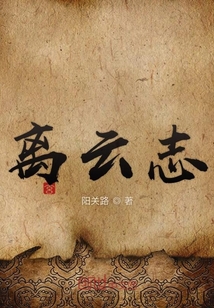 离云志
阳关路 ◎ 著